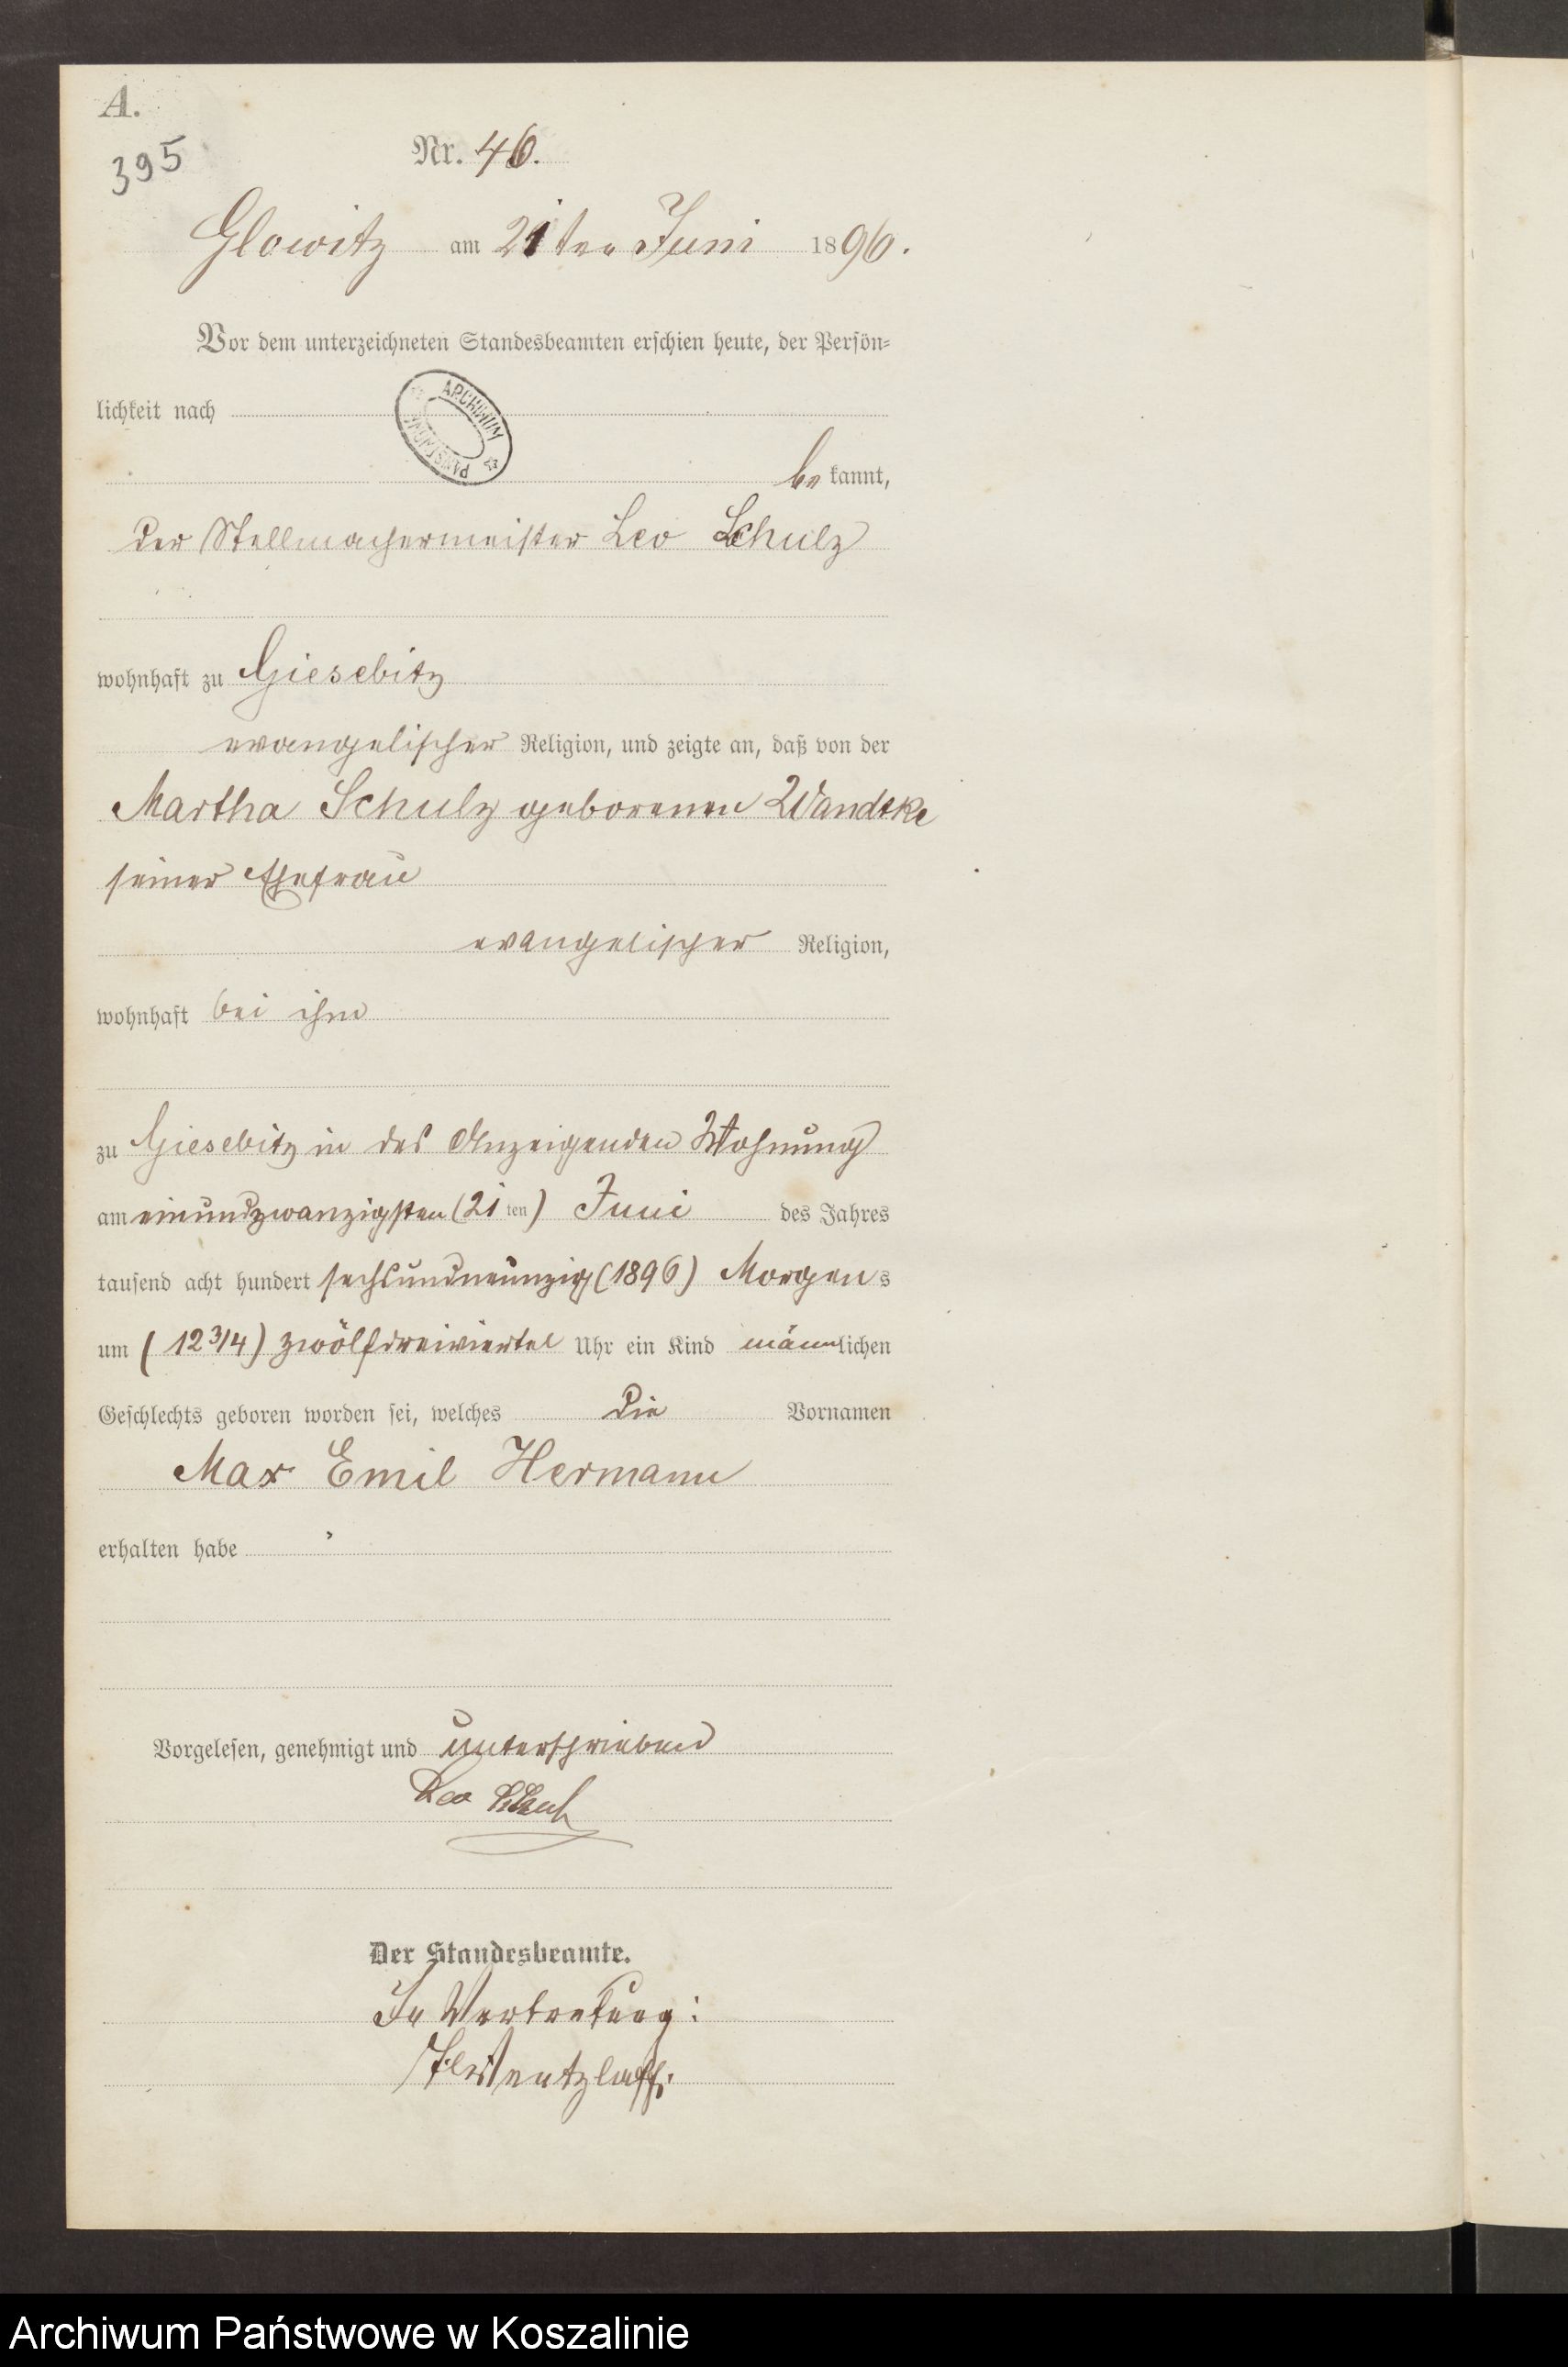 A.
395
Nr. 46.
Glowitz am 21ten Juni 1896.
Vor dem unterzeichneten Standesbeamten erschien heute, der Persön-
lichkeit nach
ARCHIWUM PAŃSTWOWE
be kannt,
der Stellmachermeister Leo Schulz
wohnhaft zu Giesebitz
evangelischer Religion, und zeigte an, daß von der
Martha Schulz geborenen Wandtke
seiner Ehefrau
evangelischer Religion,
wohnhaft bei ihm
zu Giesebitz in des Anzeigenden Wohnung
am einundzwanzigsten (21 ten) Juni des Jahres
tausend acht hundert sechsundneunzig (1896) Morgens
um (12 3/4) zwölfdreiviertel Uhr ein Kind männlichen
Geschlechts geboren worden sei, welches die Vornamen
Max Emil Hermann
erhalten habe
Vorgelesen, genehmigt und unterschrieben
Leo
Der Standesbeamte.
In Vertretung:
Wentzlaff.
Archiwum Państwowe w Koszalinie